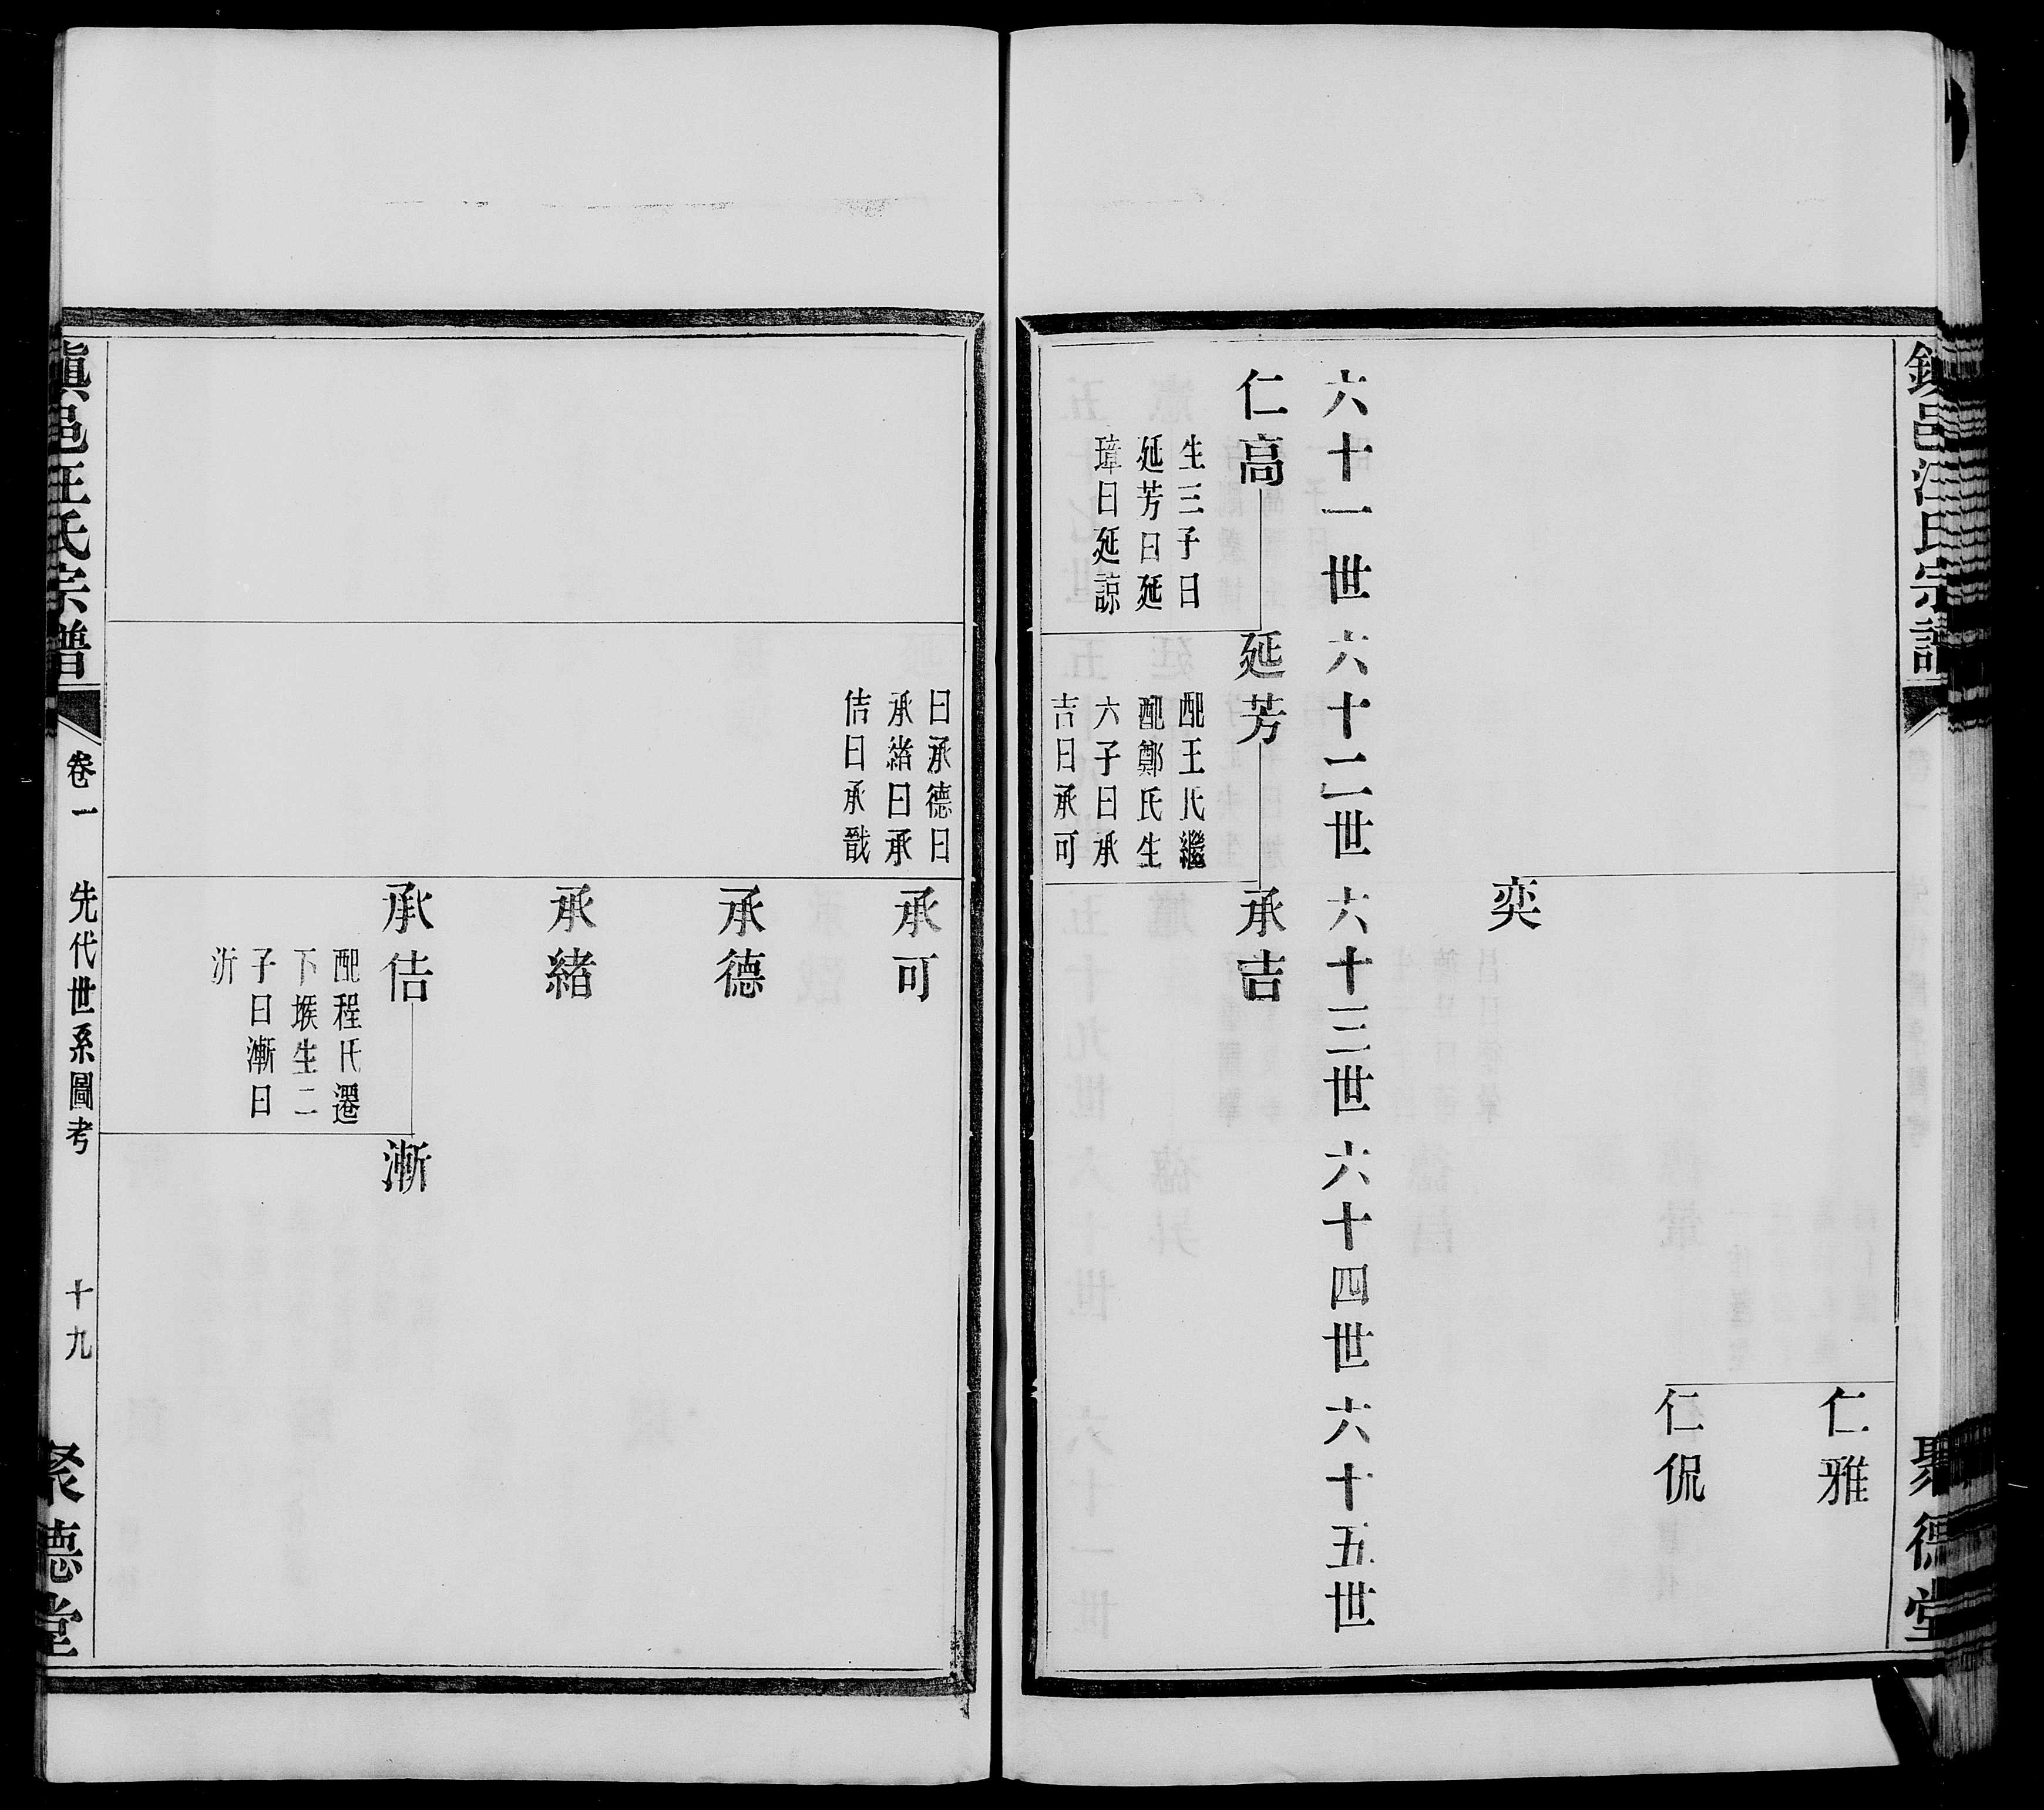 鎮邑汪氏宗譜
聚德堂
仁雅
仁侃
奕
六十一世 六十二世 六十三世 六十四世 六十五世
仁高
生三子曰
延芳曰延
璋曰延諒
延芳
配王氏繼
配鄭氏生
六子曰承
吉曰承可
承吉
曰承德曰
承緒曰承
佶曰承戩
承可
承德
承緒
承佶
配程氏遷
下堠生二
子曰漸曰
沂
漸
鎮邑汪氏宗譜
卷一
先代世系圖考
十九
聚德堂